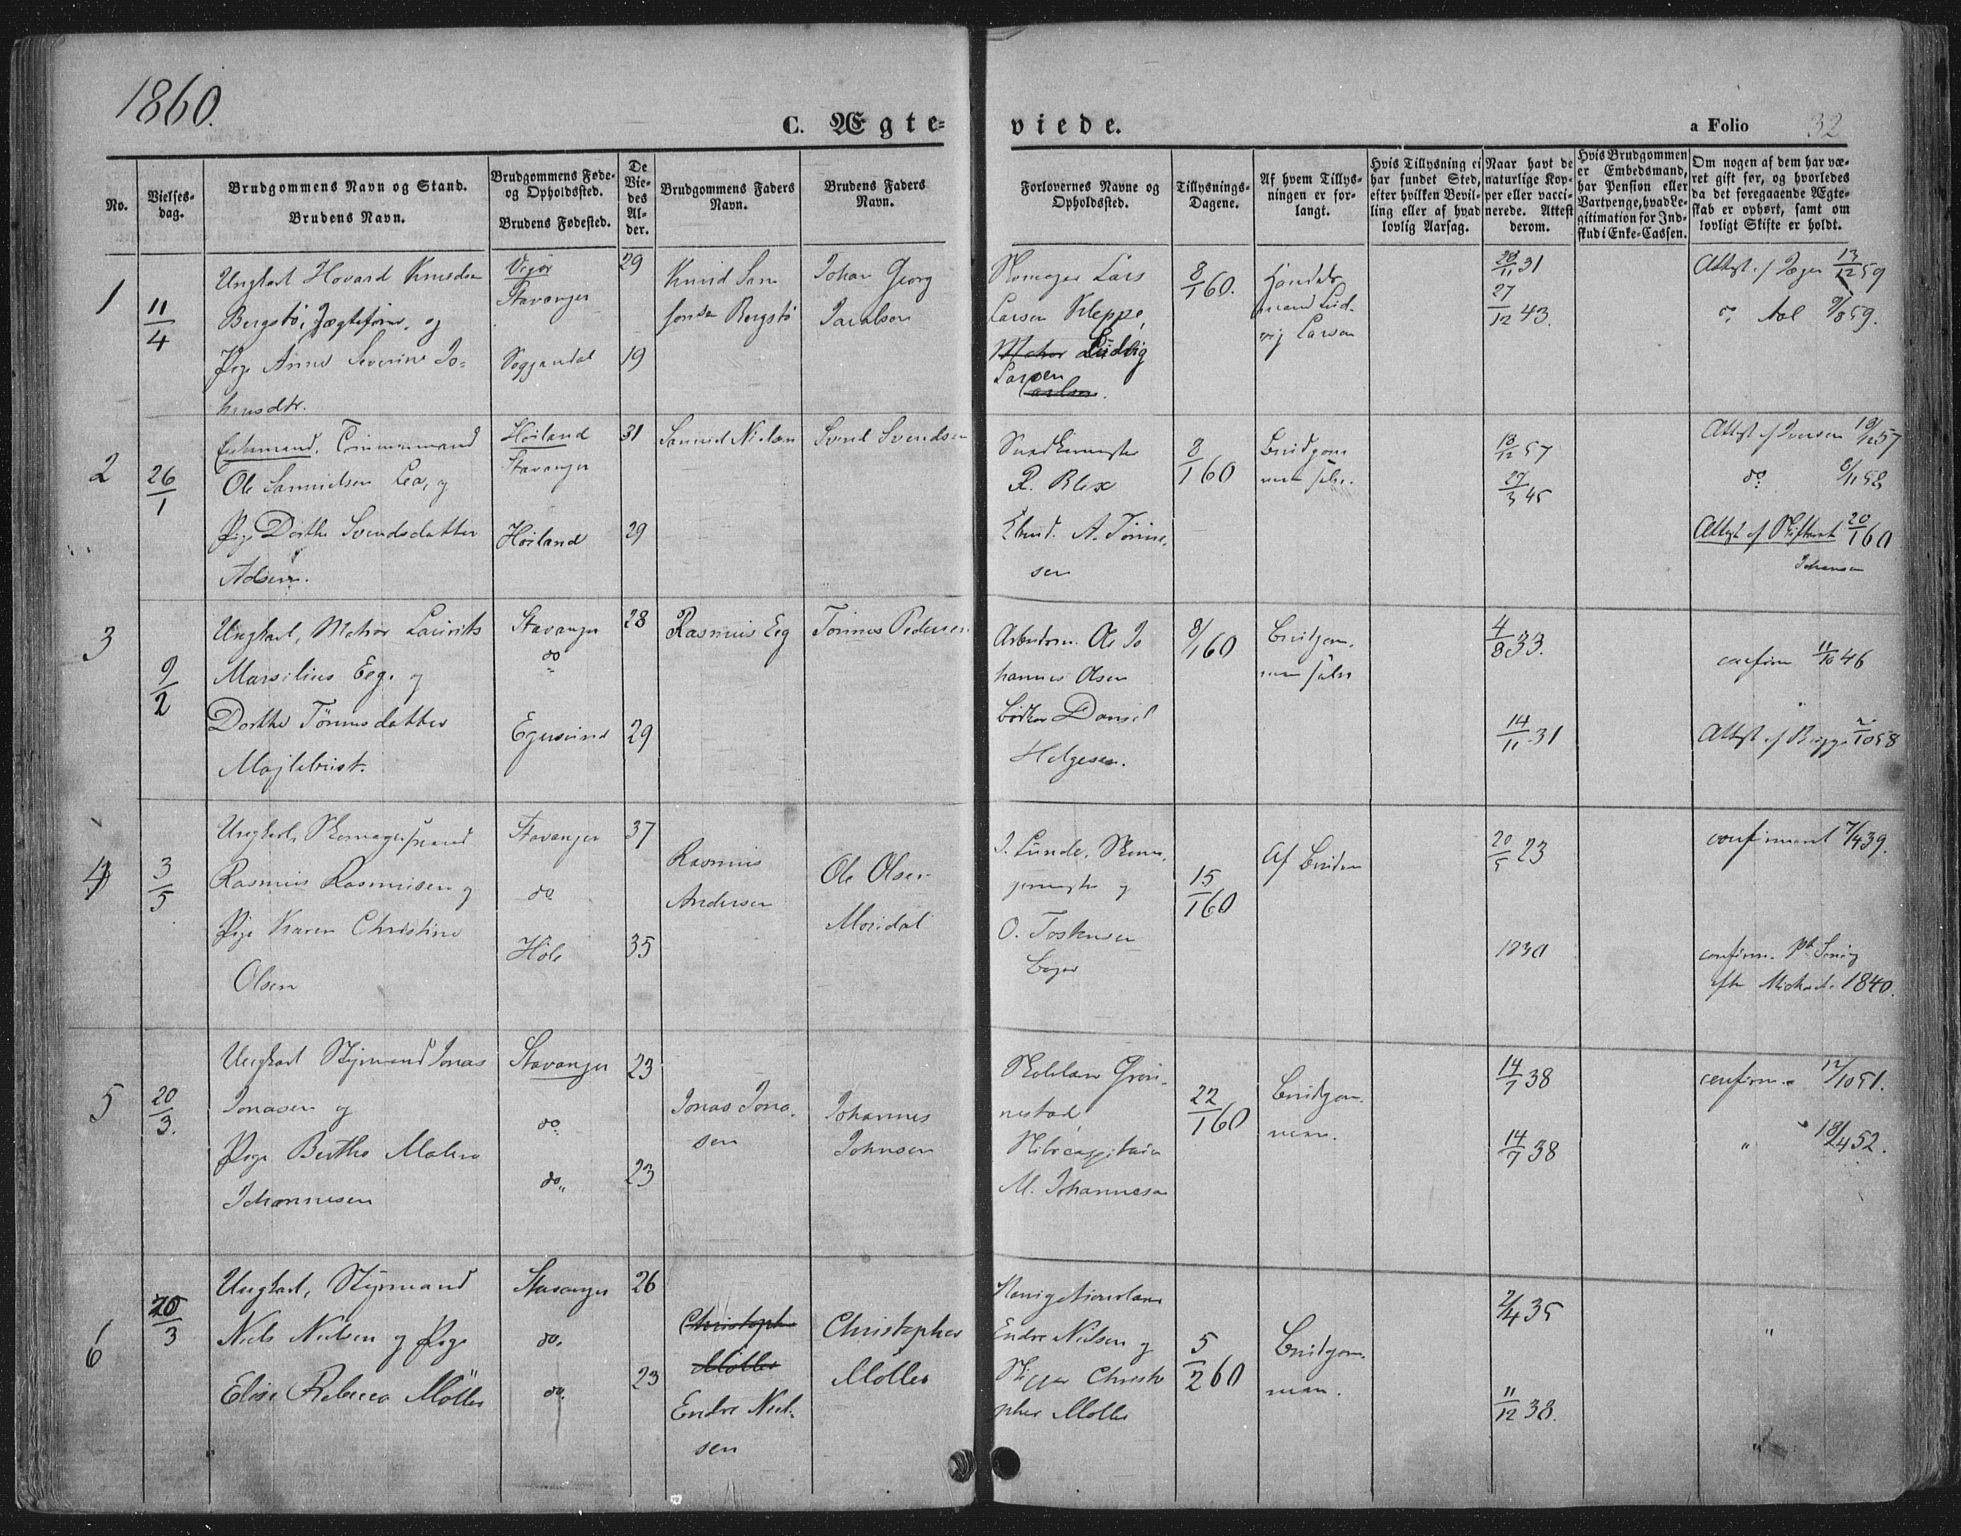 1860.
C. Ægte-
viede.
a Folio 32
No.
Vielses-
dag.
Brudgommens Navn og Stand.
Brudens Navn.
Brudgommens Føde-
og Opholdssted.
Brudens Fødested.
De
Vie-
des
Al-
der.
Brudgommens Faders
Navn.
Brudens Faders
Navn.
Forlovernes Navne og
Opholdssted.
Tillysnings-
Dagene.
Af hvem Tillys-
ningen er for-
langt.
Hvis Tillysning ei
har fundet Sted,
efter hvilken Bevil-
ling eller af hvad
lovlig Aarsag.
Naar havt de
naturlige Kop-
per eller vacci-
nerede. Attest
derom.
Hvis Brudgommen
er Embedsmand,
har Pension eller
Vartpenge, hvad Le-
gitimation for Ind-
skud i Enke-Cassen.
Om nogen af dem har væ-
ret gift før, og hvorledes
da det foregaaende Ægte-
skab er ophørt, samt om
lovligt Skifte er holdt.
1
11/4
Ungkarl Hovard Knudsen
Bergstø, Jægtefører, og
Pige Anne Severine Jo-
hnsdtr.
Stavanger
Soggendal
29
19
Knud
Bergstø
Johan Georg
Lars
Larsen Kleppe,
Ludvig
Larsen
8/1 60.
Handels-
mand Lud-
vig Larsen
20/11 31
27/12 43.
Attest f 13/12 59
do 9/8 59.
2
26/1
Enkemand, Tømmermand
Ole Samuelsen Lea, og
Pige Dorthe Svendsdatter
Adsen.
Høiland
Stavanger
Høiland
31
29
Samuel Nielsen
Svend Svendsen
Snedkermester
R. Blix
A. Tønne-
sen
8/1 60
Brudgom-
men selv.
18/12 57
27/3 45
Attest af Iversen 18/12 57
do 6/11 58
Attest af Skifteret 20/1 60
Johansen
3
9/2
Ungkarl, Matros Laurits
Marsilius Eeg. og
Dorthe Tønnesdatter
Møgletvist.
Stavanger
do
Egersund
28
29
Rasmus Eeg
Tønnes Pedersen
Arbeidsm. Ole Jo
hannes Olsen
Bødker Daniel
Helgesen.
8/1 60
Brudgom-
men selv
4/8 33.
14/11 31
confirm 11/10 46
Attest af 2/10 58
4
3/5
Ungkarl, Skomagersvend
Rasmus Rasmusen og
Pige Karen Christine
Olsen
Stavanger
do
Høle
37
35
Rasmus
Andersen
Ole Olsen
Moridal
J. Lunde, Skoma-
germester og
O. Torkensen
15/1 60
Af Bruden
20/5 23
1830
confirmeret 7/4 39.
confirm.
efter Michaeli 1840.
5
20/3.
Ungkarl Styrmand Jonas
Jonasen og
Pige Berthe Malene
Johannesen
Stavanger
do.
do.
23
23
Jonas Jona-
sen
Johannes
Johnsen
Grøn-
nestad
M. Johannesen
22/1 60
Brudgom-
men.
14/7 38
14/7 38
confirm. 12/10 51.
" 18/4 52.
6
20/3
Ungkarl, Styrmand
Niels Nielsen og Pige
Elise Rebecca Møller
Stavanger
do.
do.
26
23
Christoph
Møller
Endre Niel-
sen
Christopher
Møller
Navigationslærer
Endre Nielsen og
Skipper Christo
pher Møller
5/2 60
Brudgom-
men.
2/4 35
11/12 38.
"
"